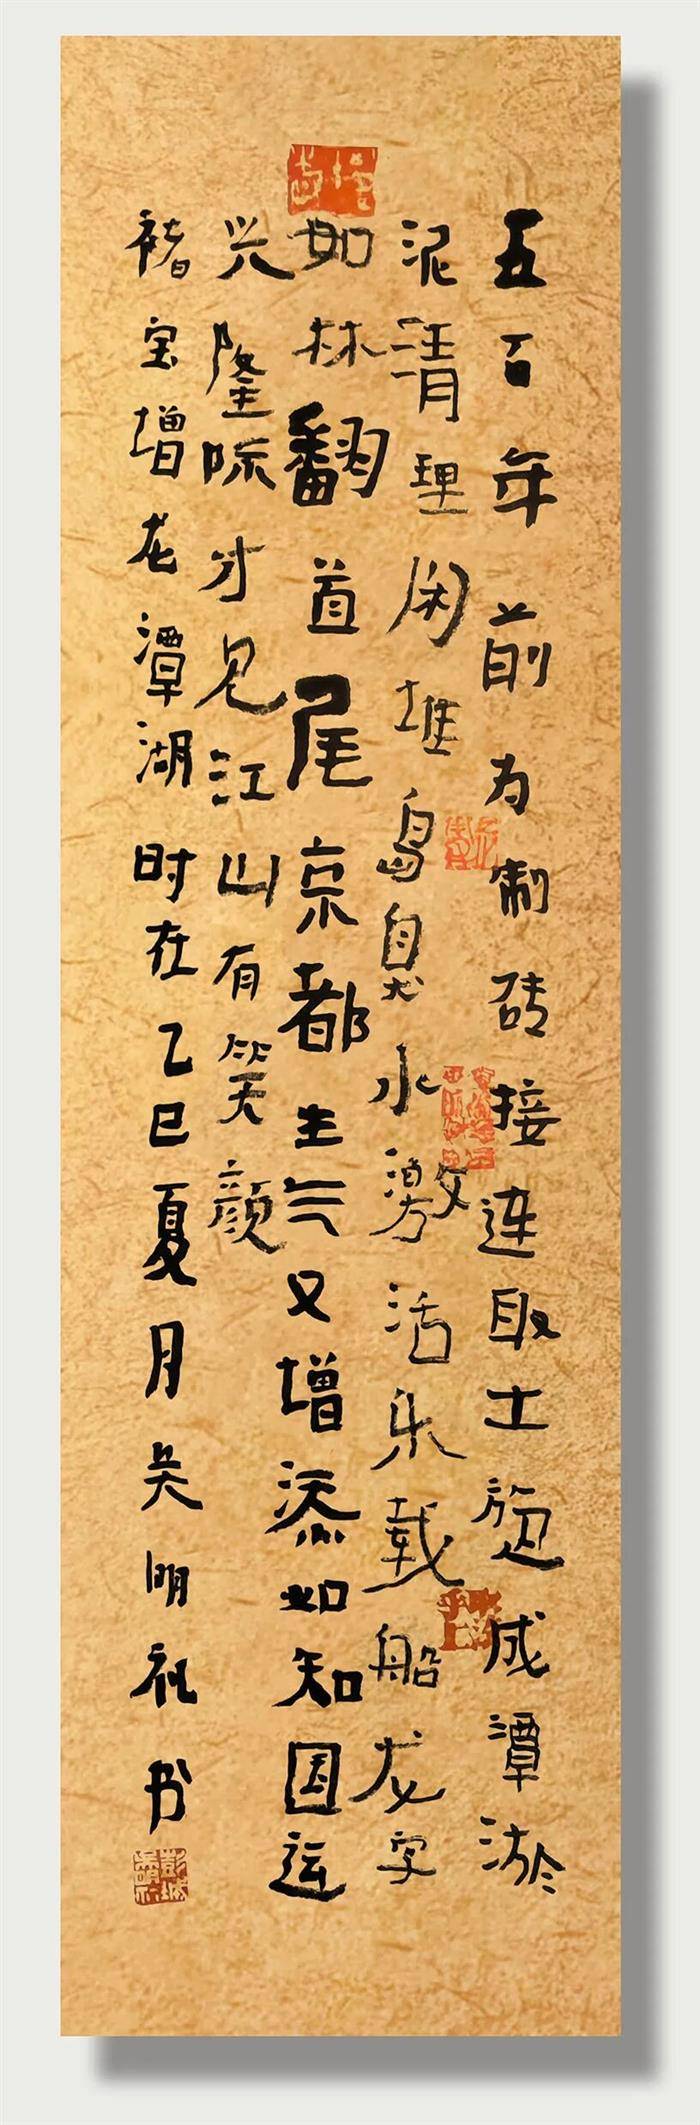 五百年前为制砖接连取土竟成潭淤
泥清理闲堆岛自臭水激活乐载船龙字
如林翻首尾京都生气又增添如知国运
兴隆际才见江山有笑颜
褚宝增龙潭湖时在乙巳夏月吴明礼书